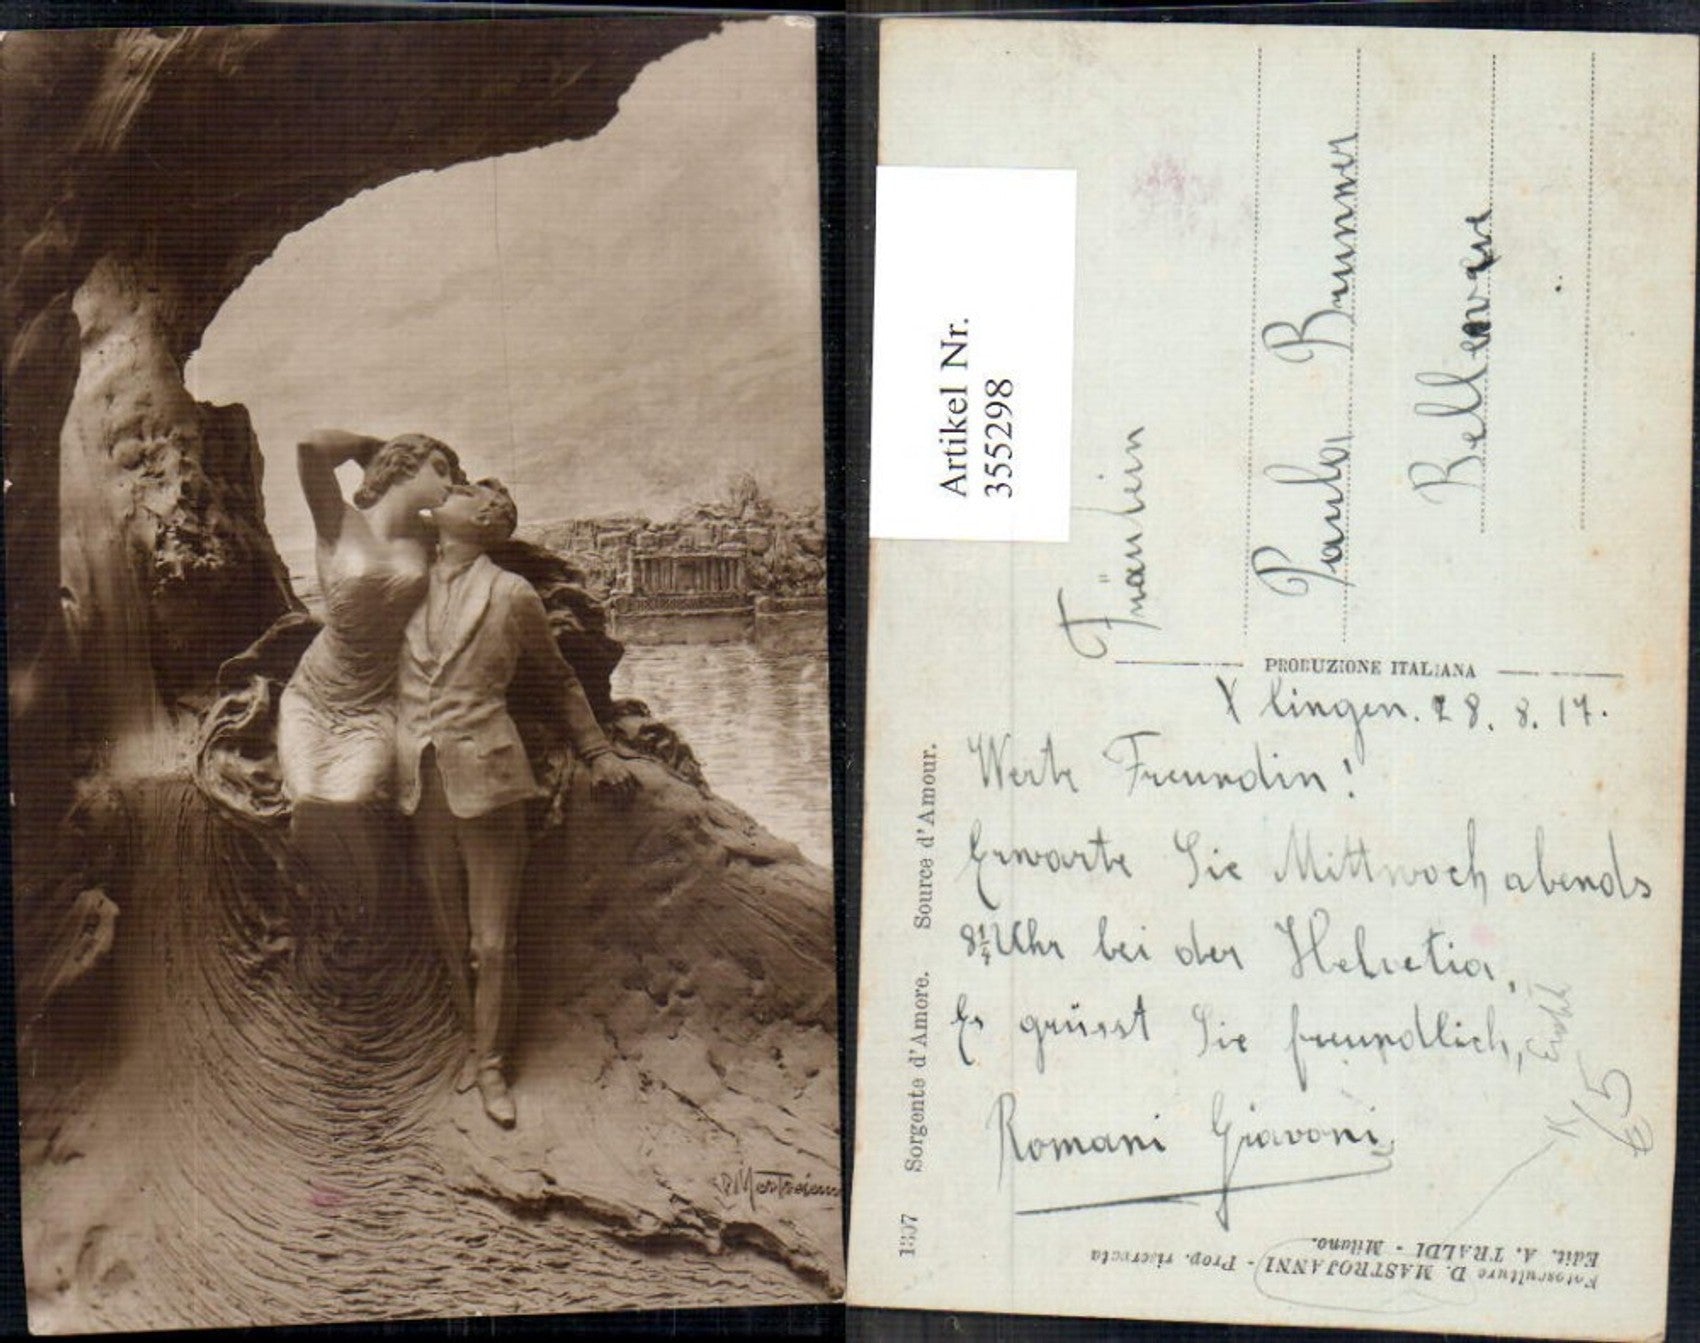 D. Mastroianni
Artikel Nr.
355298
Fräulein
Paula Brunner
Bellevue
PRODUZIONE ITALIANA
Xlingen. 28. 8. 17.
Werte Freundin!
Erwarte Sie Mittwoch abends
8¼ Uhr bei der Helvetia,
Es grüsst Sie freundlich,
Romani Giavoni
K 65
1307 Sorgente d'Amore. Source d'Amour.
Fotosculture D. MASTROJANNI - Prop. riservata
Edit. A. TRALDI - Milano.